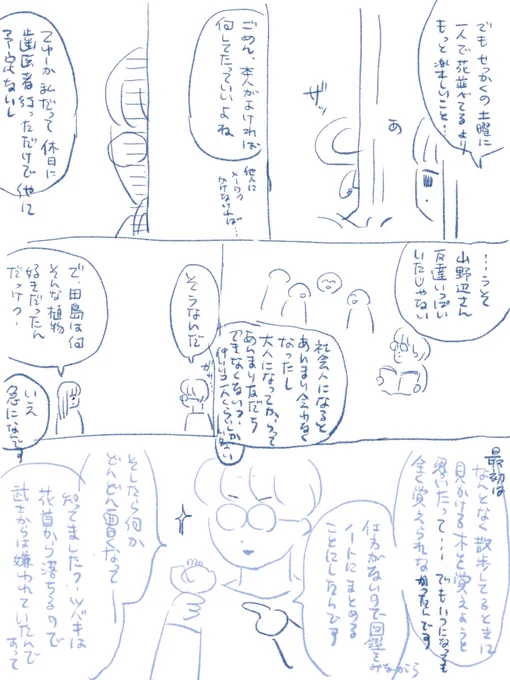 でも せっかくの土曜に
一人で花並べてるより
もっと楽しいこと…
あ
ザッ
ごめん、本人がよければ
何してたっていいよね
他人に
メーワク
かけなければ…
つーか私だって休日に
歯医者行っただけで他に
予定ないし
…うそ
山野辺さん
友達いっぱい
いたじゃない
社会人になると
あんまり会わなく
なったし
大人になってからって
あんまり友だち
できなくない?
そうなんだ
で、田島は何
そんな植物
好きだったん
だっけ?
いえ
急になです
最初は
なんとなく散歩してるときに
見かける木を覚えようと
思いたって… でもいつになっても
全く覚えられな
かったんです
仕方がないので図鑑をみながら
ノートにまとめる
ことにしたんです
そしたら何か
どんどん面白くなって
知ってました?ツバキは
花首から落ちるので
武士からは嫌われていたんで
すって